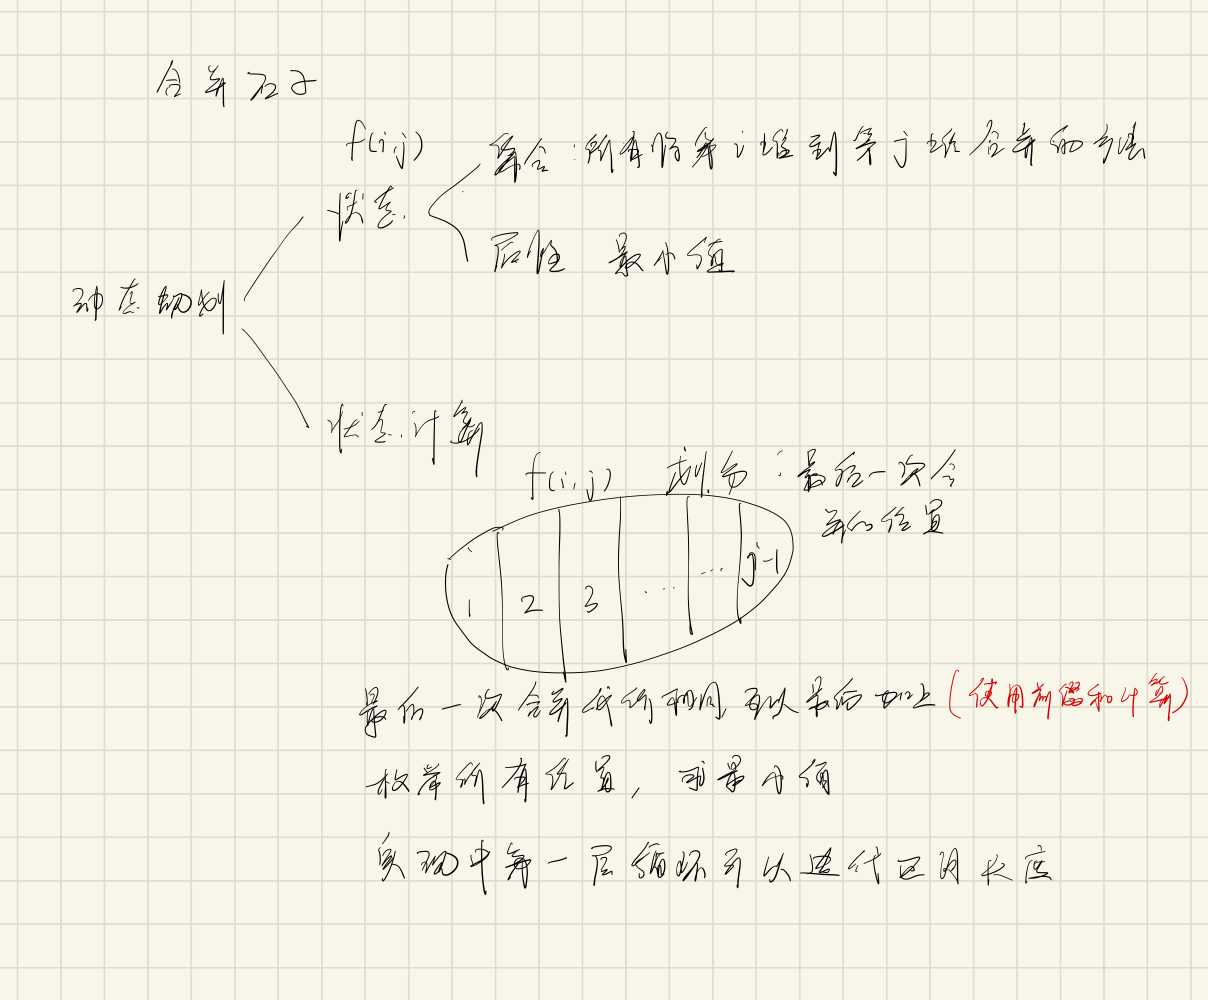 合并石子
f(i,j)
集合:所有将第i堆到第j堆合并的方法
状态
属性 最小值
动态规划
状态计算
f(i,j) 划分:最后一次合
并的位置
1 2 3 ... ... j-1
最后一次合并代价相同 可以最后加上(使用前缀和计算)
枚举所有位置,求最小值
实现中第一层循环可以迭代区间长度